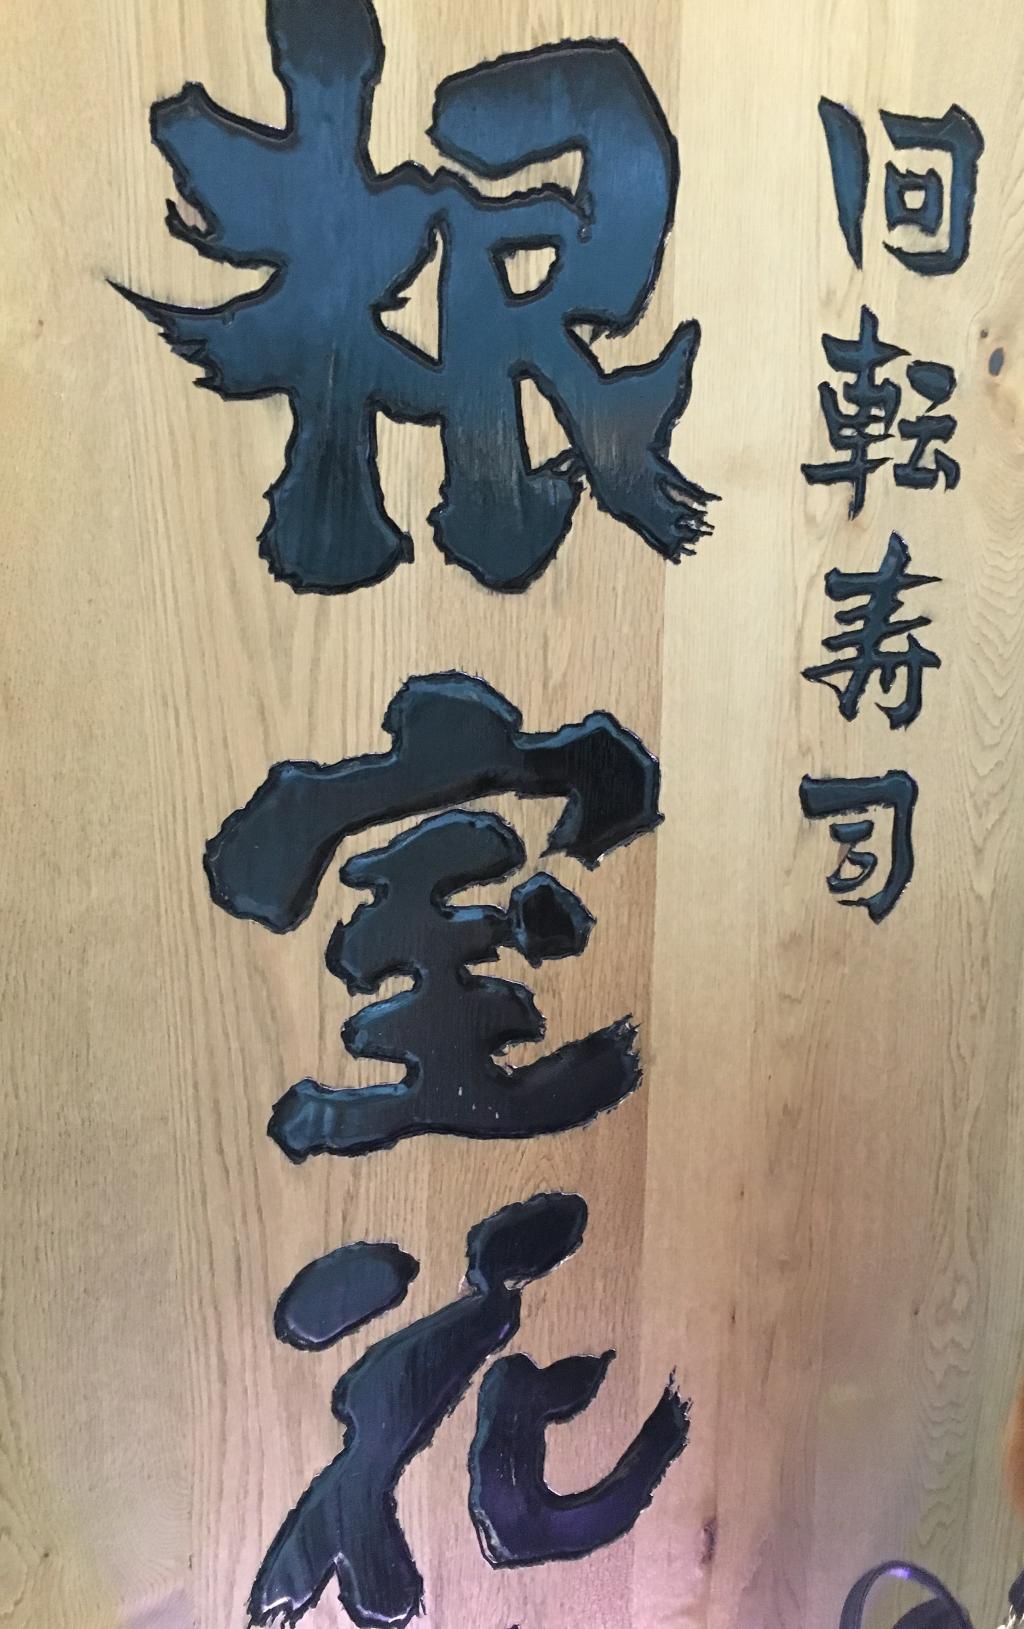 回転寿司
根室花